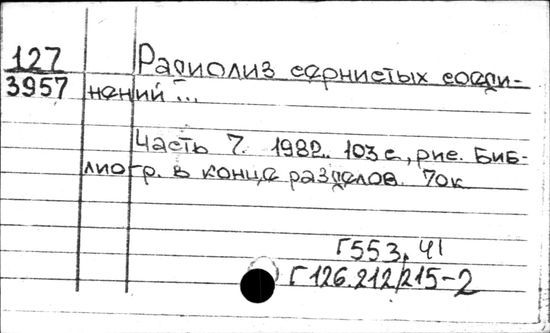 127 Радиолиз сернистых соеди-
3957 нений...
Часть 7. 1982. 103 с, рис. Биб-
лиогр. в конце разделов. 70к
Г553.41
Г126.212/215-2